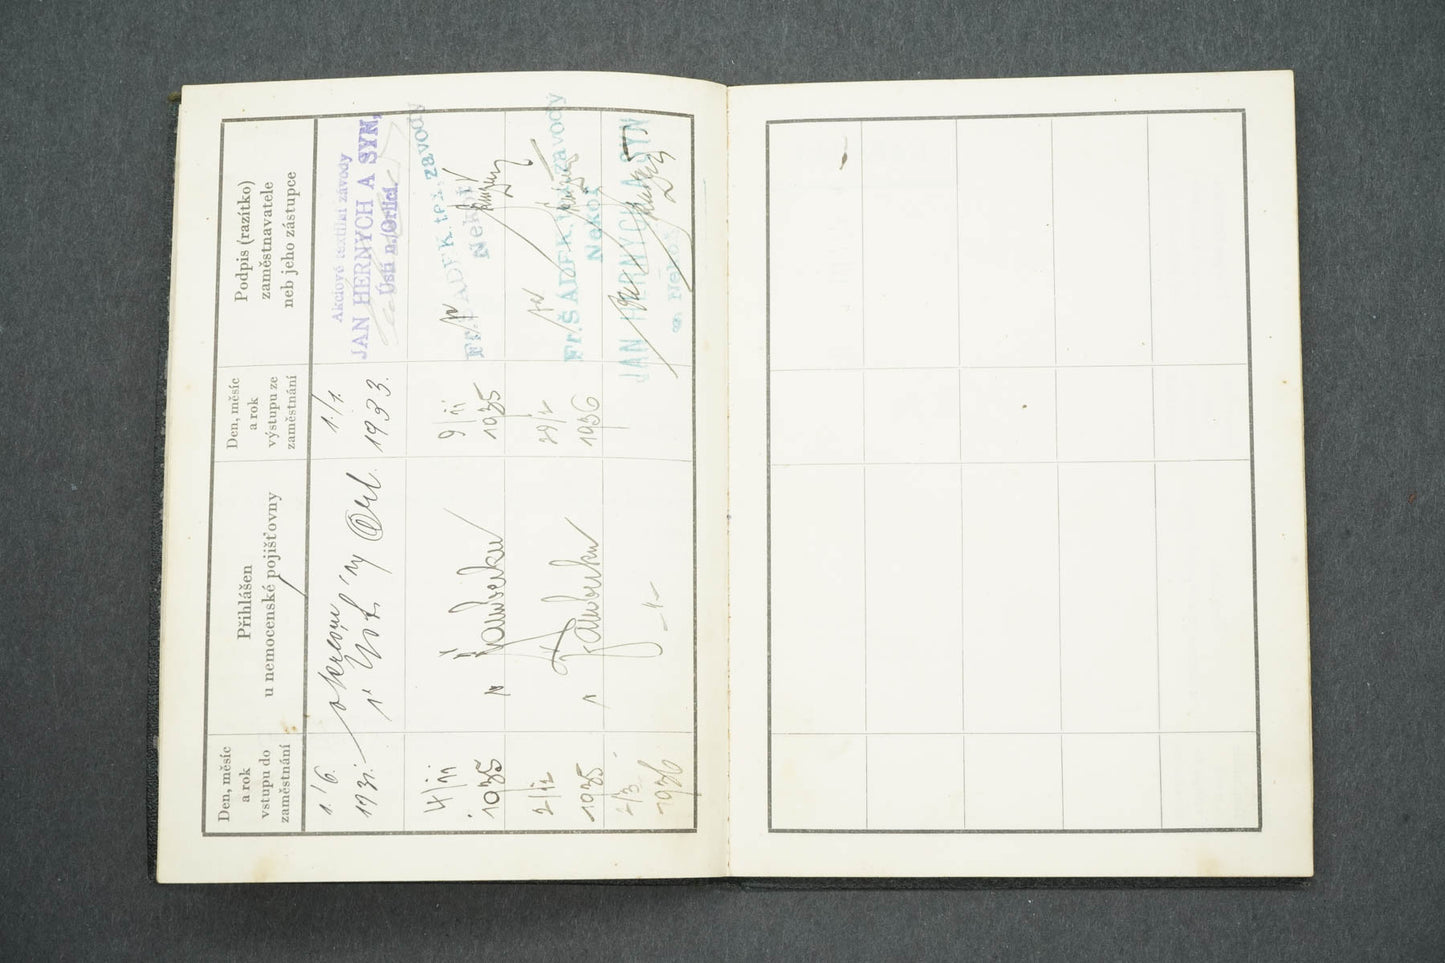 Den, měsíc
a rok
vstupu do
zaměstnání
Přihlášen
u nemocenské pojišťovny
Den, měsíc
a rok
výstupu ze
zaměstnání
Podpis (razítko)
zaměstnavatele
neb jeho zástupce
1./6.
1931.
okresní
1./1.
1933.
Akciové textilní závody
JAN HERNYCH A SYN,
Ústí n./Orlicí.
4/11
1935
Žamberku
9/11
1935
Fr. ŠÁDEK tex. závody
Nekoř
2/12
1935
Žamberku
29/2
1936
Fr. ŠÁDEK tex. závody
Nekoř
2/3
1936
-"-
JAN HERNYCH A SYN